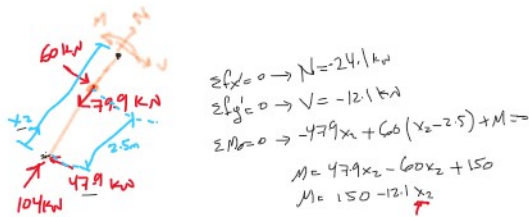 N
M
V
60KN
79.9 KN
x2
2.5m
47.9 KN
104KN
Σfx'=0 → N=-24.1 KN
Σfy'=0 → V=-12.1 KN
ΣMo=0 → -47.9x₂+60(x₂-2.5)+M=0
M=47.9x₂-60x₂+150
M=150-12.1x₂